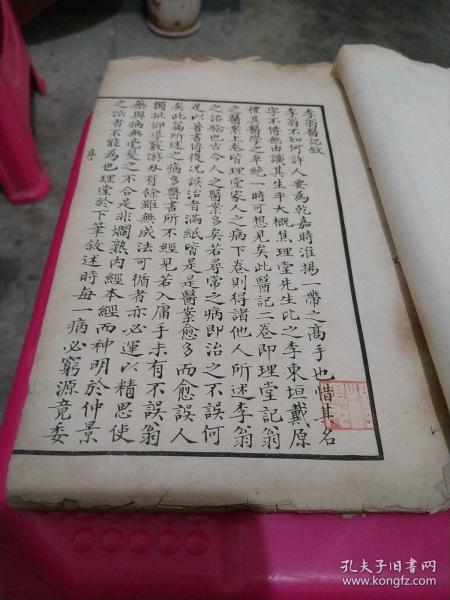 李翁醫記敘
李翁不知何許人要為乾嘉時淮揚一帶之高手也惜其名
字不傳無由識其生平大概焦理堂先生比之李東垣戴原
禮其醫學之卓絕一時可想見矣此醫記二卷即理堂記翁
之醫案上卷皆理堂家人之病下卷則得諸他人所述李翁
之治驗也古今人之醫案多矣若尋常之病即治之不誤何
足以著書傳後況誤治者滿紙皆是是醫案愈多而愈誤人
矣此篇所述之病多醫書所不經見若入庸手未有不誤翁
獨批卻導窾游刃有餘雖無成法可循者亦必運以精思使
藥與病無毫髮之不合是非爛熟內經本經而神明於仲景
之法者不能為也理堂於下筆敘述時每一病必窮源竟委
序
孔夫子旧书网
www.kongfz.com